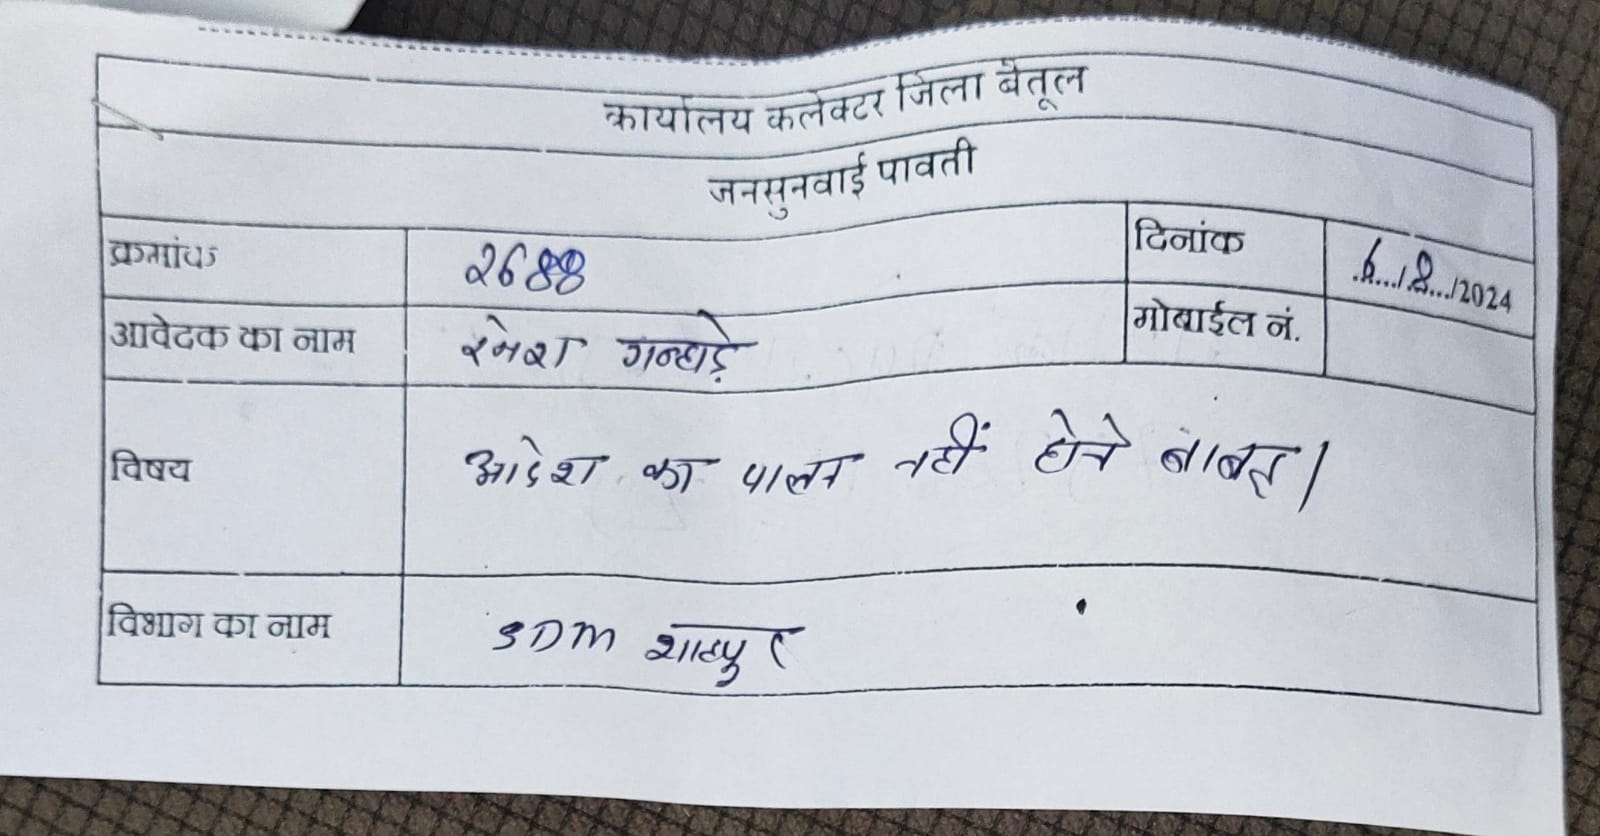 कार्यालय कलेक्टर जिला बेतूल
जनसुनवाई पावती
क्रमांक 2688 दिनांक 6.../8.../2024
आवेदक का नाम रमेश गन्हाड़े मोबाईल नं.
विषय आदेश का पालन नहीं होने बाबत।
विभाग का नाम SDM शाहपुर